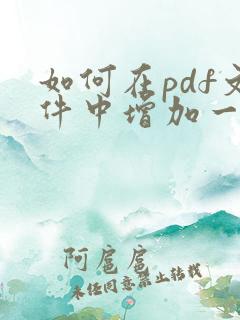 如何在pdf文
件中增加一
阿扈扈
未经同意禁止转载